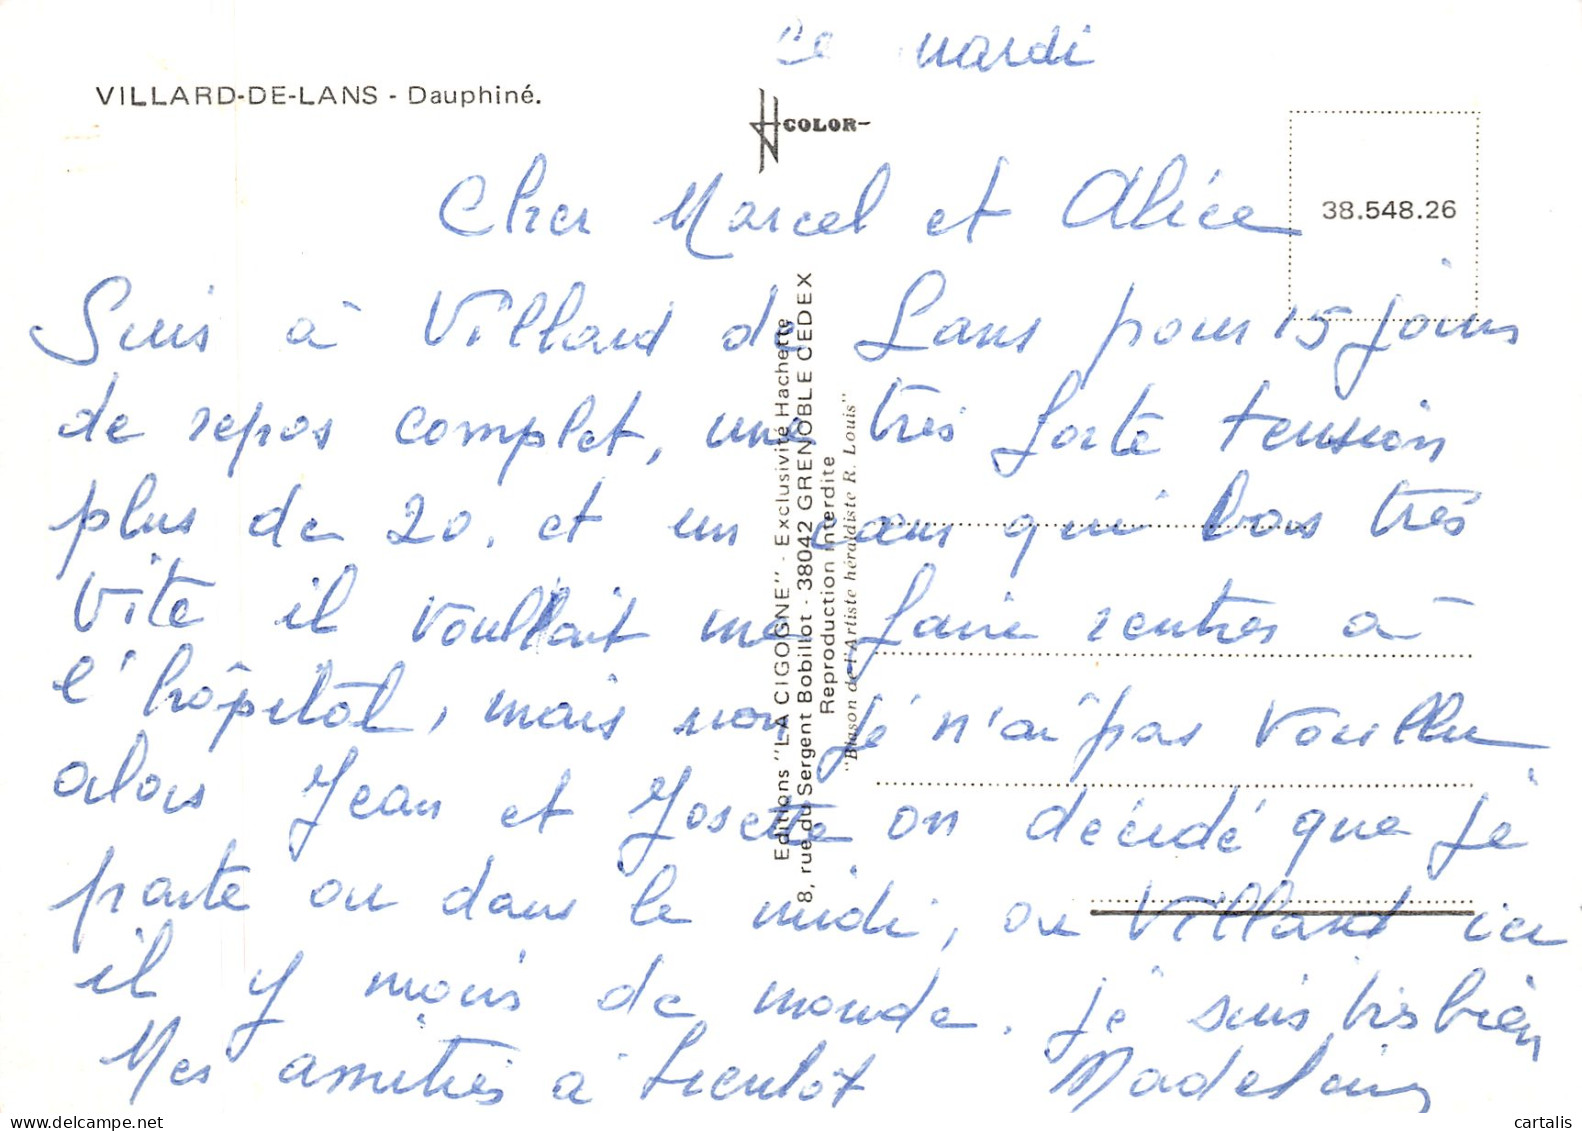 Ce mardi
VILLARD-DE-LANS - Dauphiné.
COLOR
38.548.26
Cher Marcel et Alice
Suis à Villard de Lans pour 15 jours
de repos complet, une très forte tension
plus de 20. et un cœur qui bas très
vite il voullait me faire rentrer à
l'hôpital, mais non je n'ai pas voullu
alors Jean et Josette on décidé que je
parte ou dans le midi, ou Villard ici
il y mois de monde. je suis très bien
Mes amitiés à bientôt Madeleine
Editions "LA CIGOGNE" - Exclusivité Hachette
8, rue du Sergent Bobillot - 38042 GRENOBLE CEDEX
Reproduction interdite
"Blason de l'Artiste héraldiste R. Louis"
cartalis